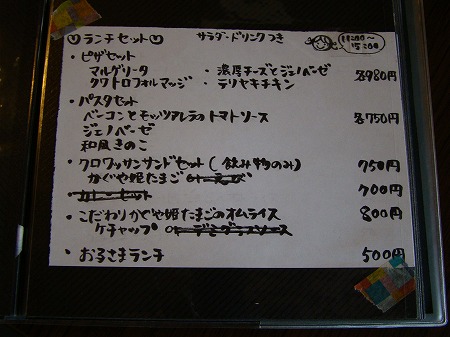 ランチセット サラダ・ドリンクつき 11:00〜15:00
・ピザセット
マルゲリータ ・濃厚チーズとジェノベーゼ 各980円
クワトロフォルマッジ ・テリヤキチキン
・パスタセット
ベーコンとモッツアレラのトマトソース 各750円
ジェノベーゼ
和風きのこ
・クロワッサンサンドセット(飲み物のみ) 750円
かぐや姫たまご
カレーセット 700円
・こだわりかぐや姫たまごのオムライス 800円
ケチャップ or デミグラスソース
・お子さまランチ 500円